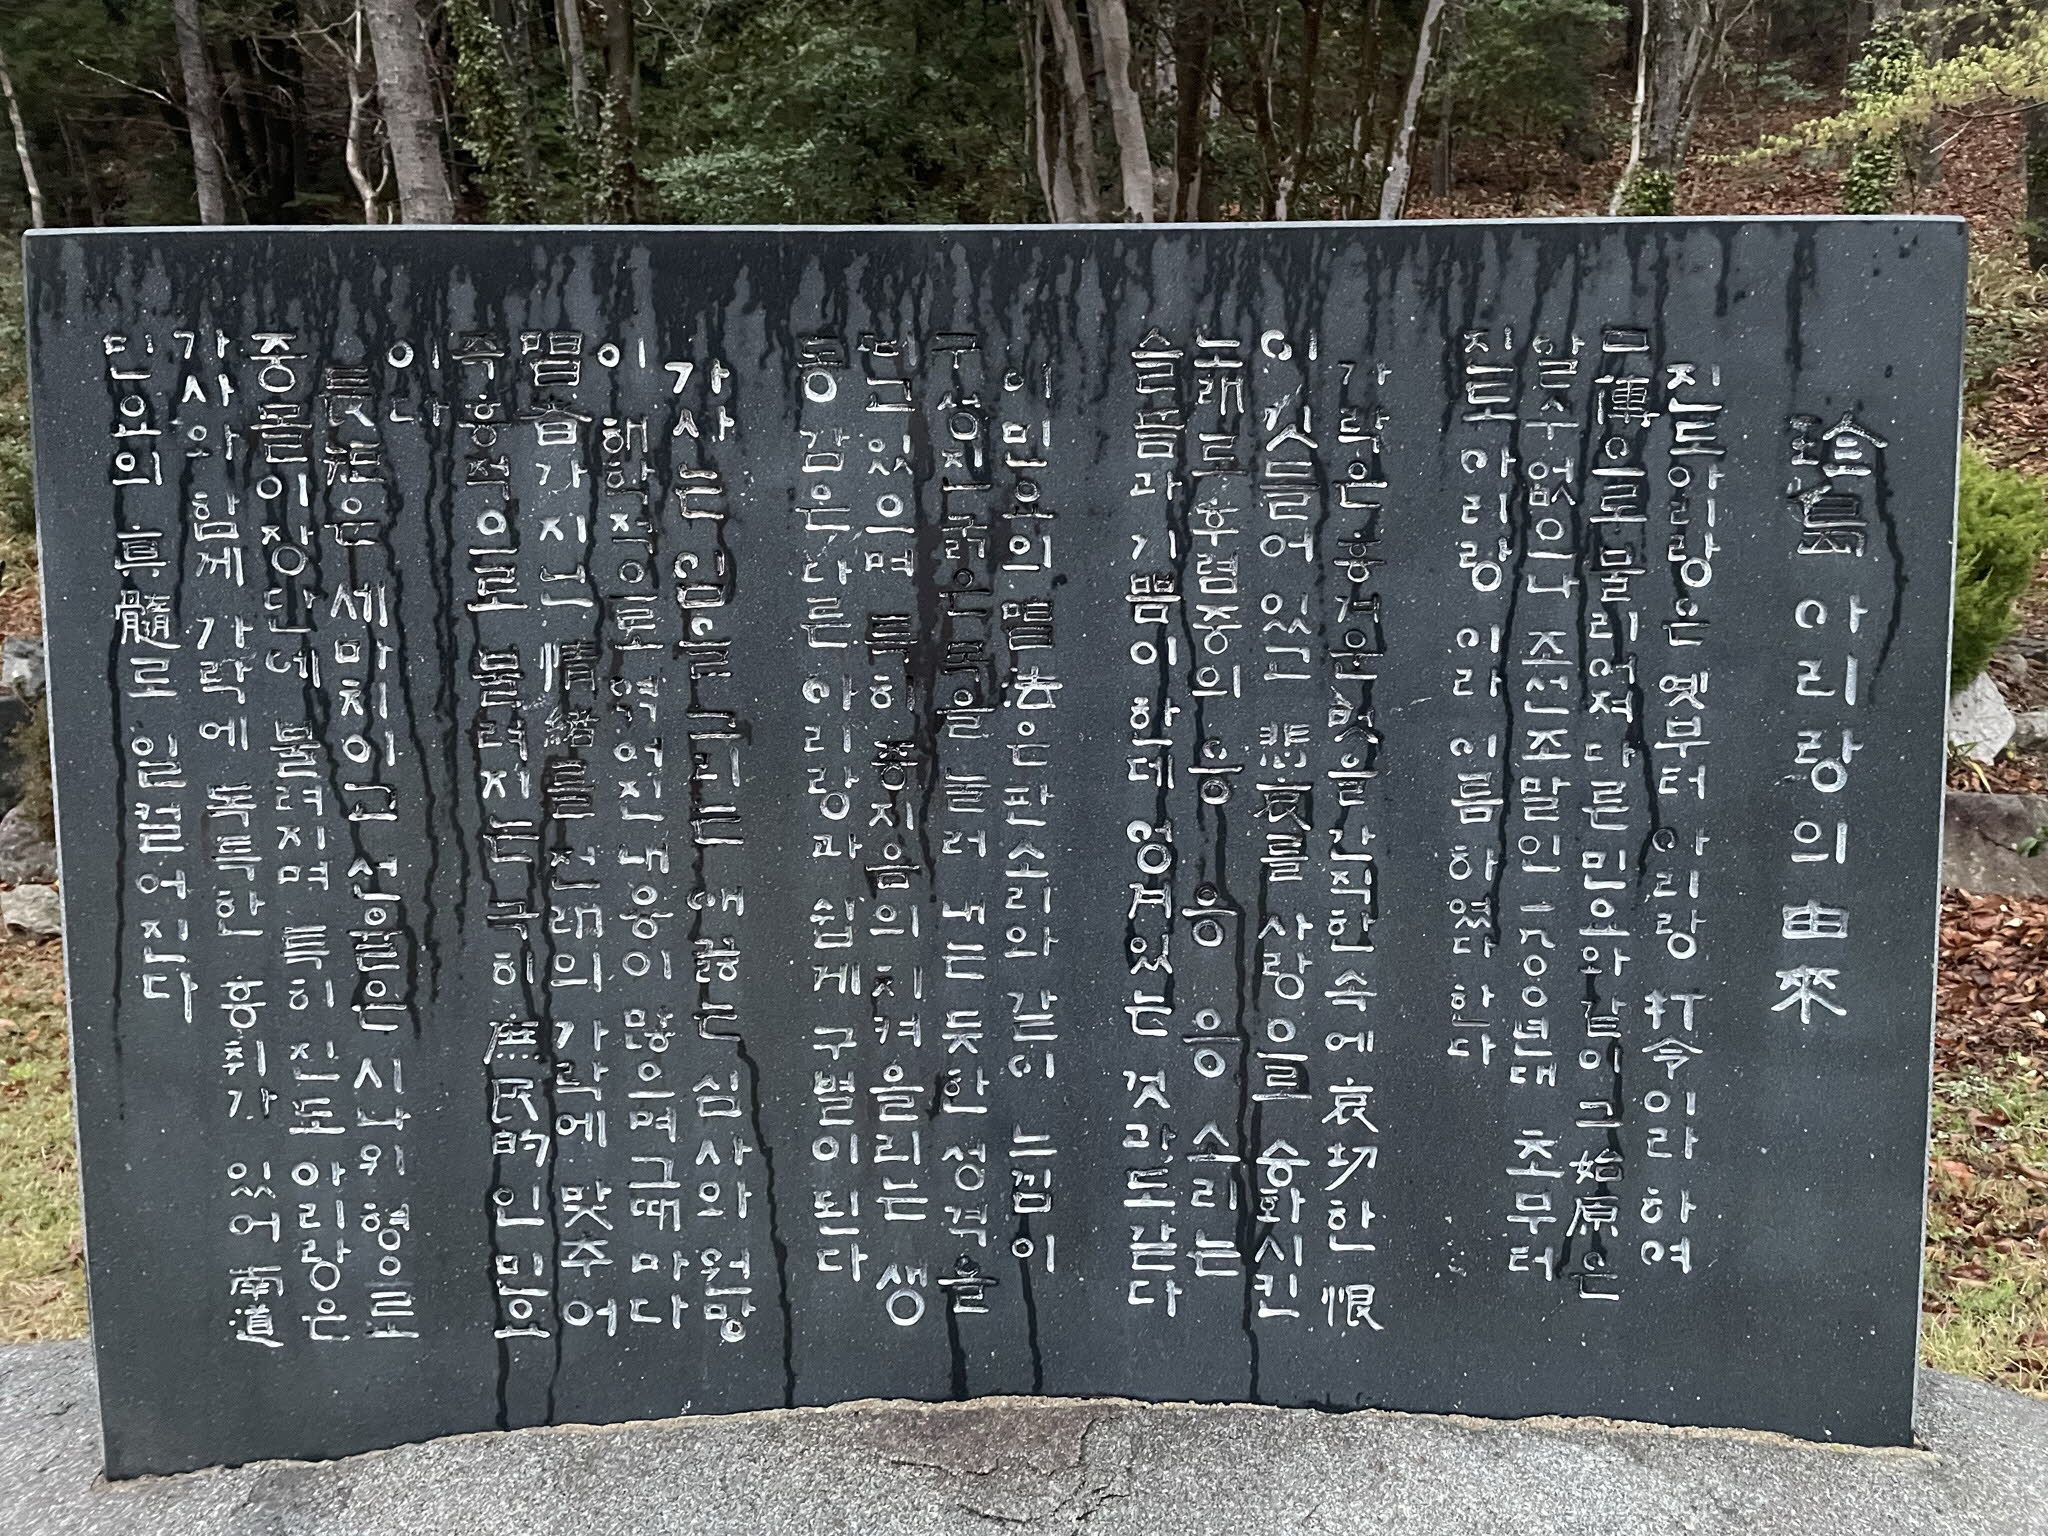 珍島 아리랑의 由來
진도아리랑은 옛부터 아리랑 打令이라 하여
口傳으로 물리어져 다른 민요와 같이 그 始原은
알수 없으나 조선조 말인 一九00년대 초부터
진도 아리랑 이라 이름 하였다 한다
가락은 흥겨운 멋을 간직한 속에 哀切한 恨
이 깃들어 있고 悲哀를 사랑으로 승화시킨
노래로 후렴중의 응 응 응 응 소리는
슬픔과 기쁨이 한데 엉겨있는 것과도 같다
이 민요의 唱法은 판소리와 같이 느낌이
구성지니 굵은 목을 눌러 내는 듯한 성격을
띠고 있으며 특히 중지음의 치켜올리는 생
동감은 다른 아리랑과 쉽게 구별이 된다
가사는 임을 그리는 애끓는 심사와 원망
이 해학적으로 엮어진 내용이 많으며 그때마다
唱者가 지닌 情緖를 전래의 가락에 맞추어
즉흥적으로 불려지는 극히 庶民的인 민요
이다
長短은 세마치이고 선율은 시나위형으로
중몰이장단에 불려지며 특히 진도아리랑은
가사와 함께 가락에 독특한 흥취가 있어 南道
민요의 眞髓로 일컬어진다